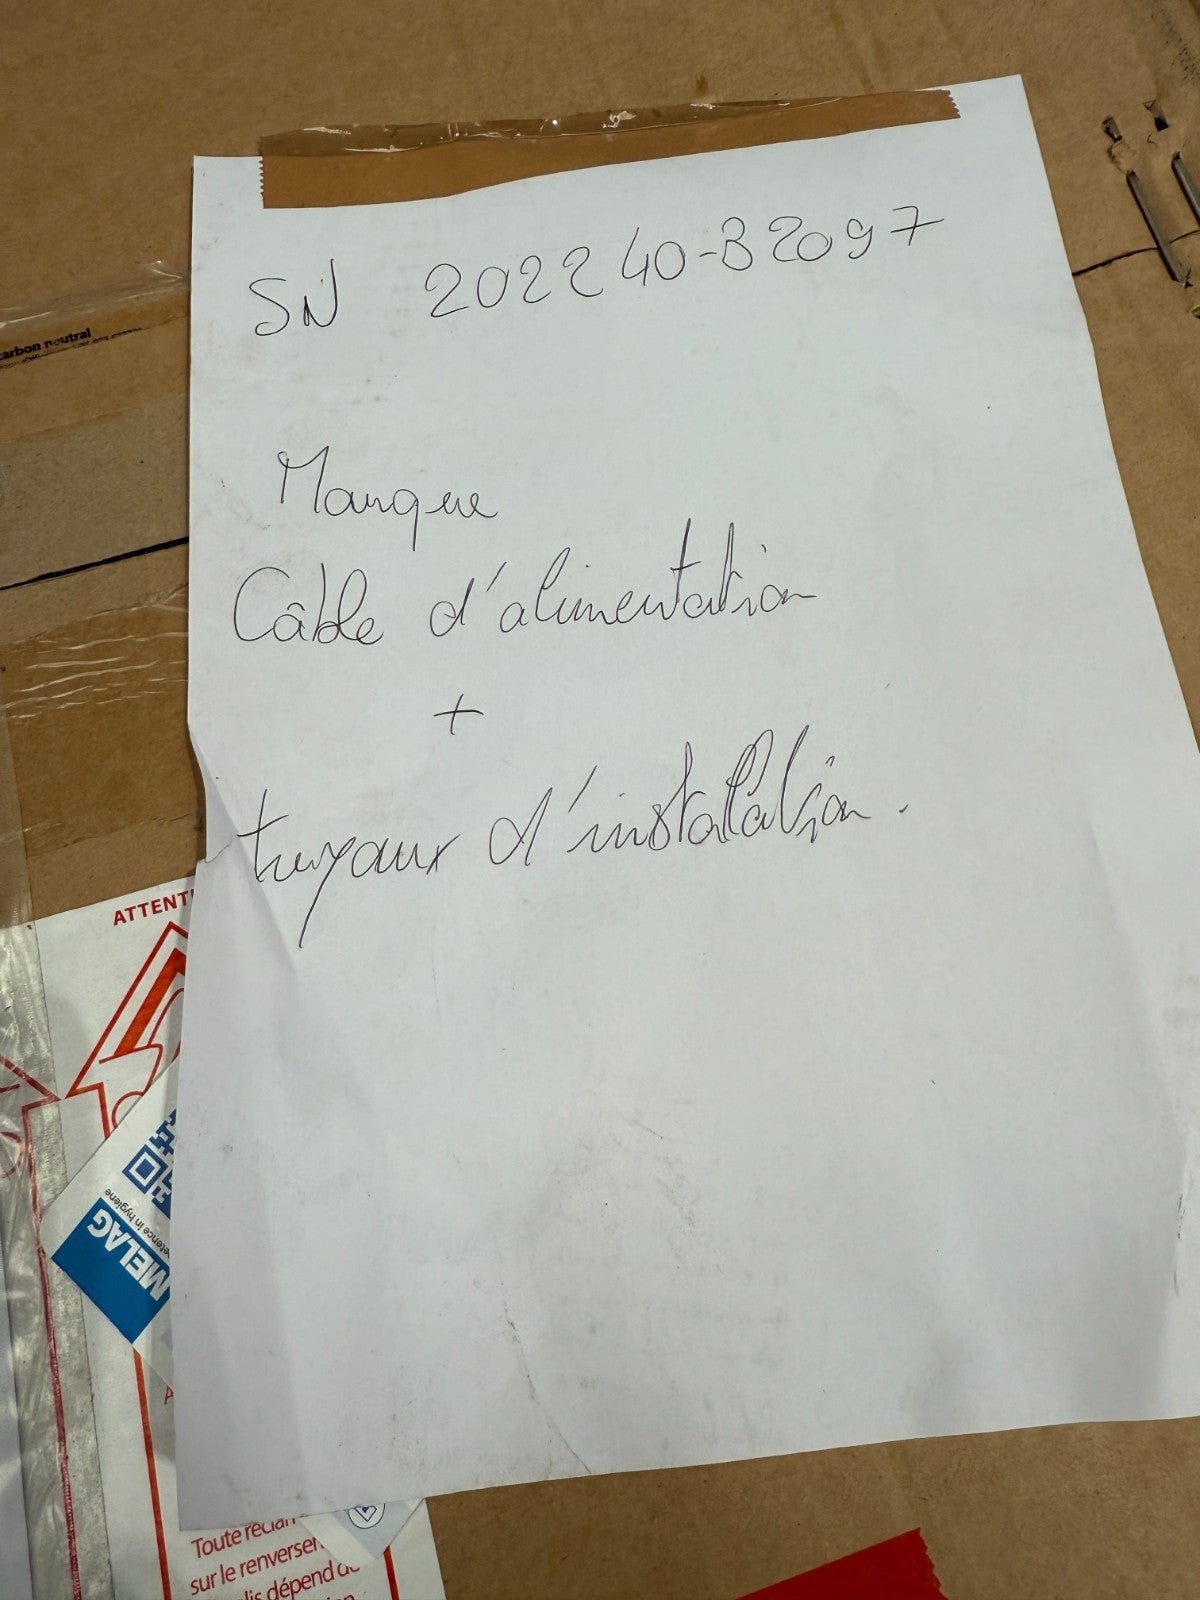 SN 202240-B2097
Manque
Câble d'alimentation
+
tuyaux d'installation.
carbon neutral
ATTENTI
MELAG
etence in hygiene
Toute réclam
sur le renversem
dépend de